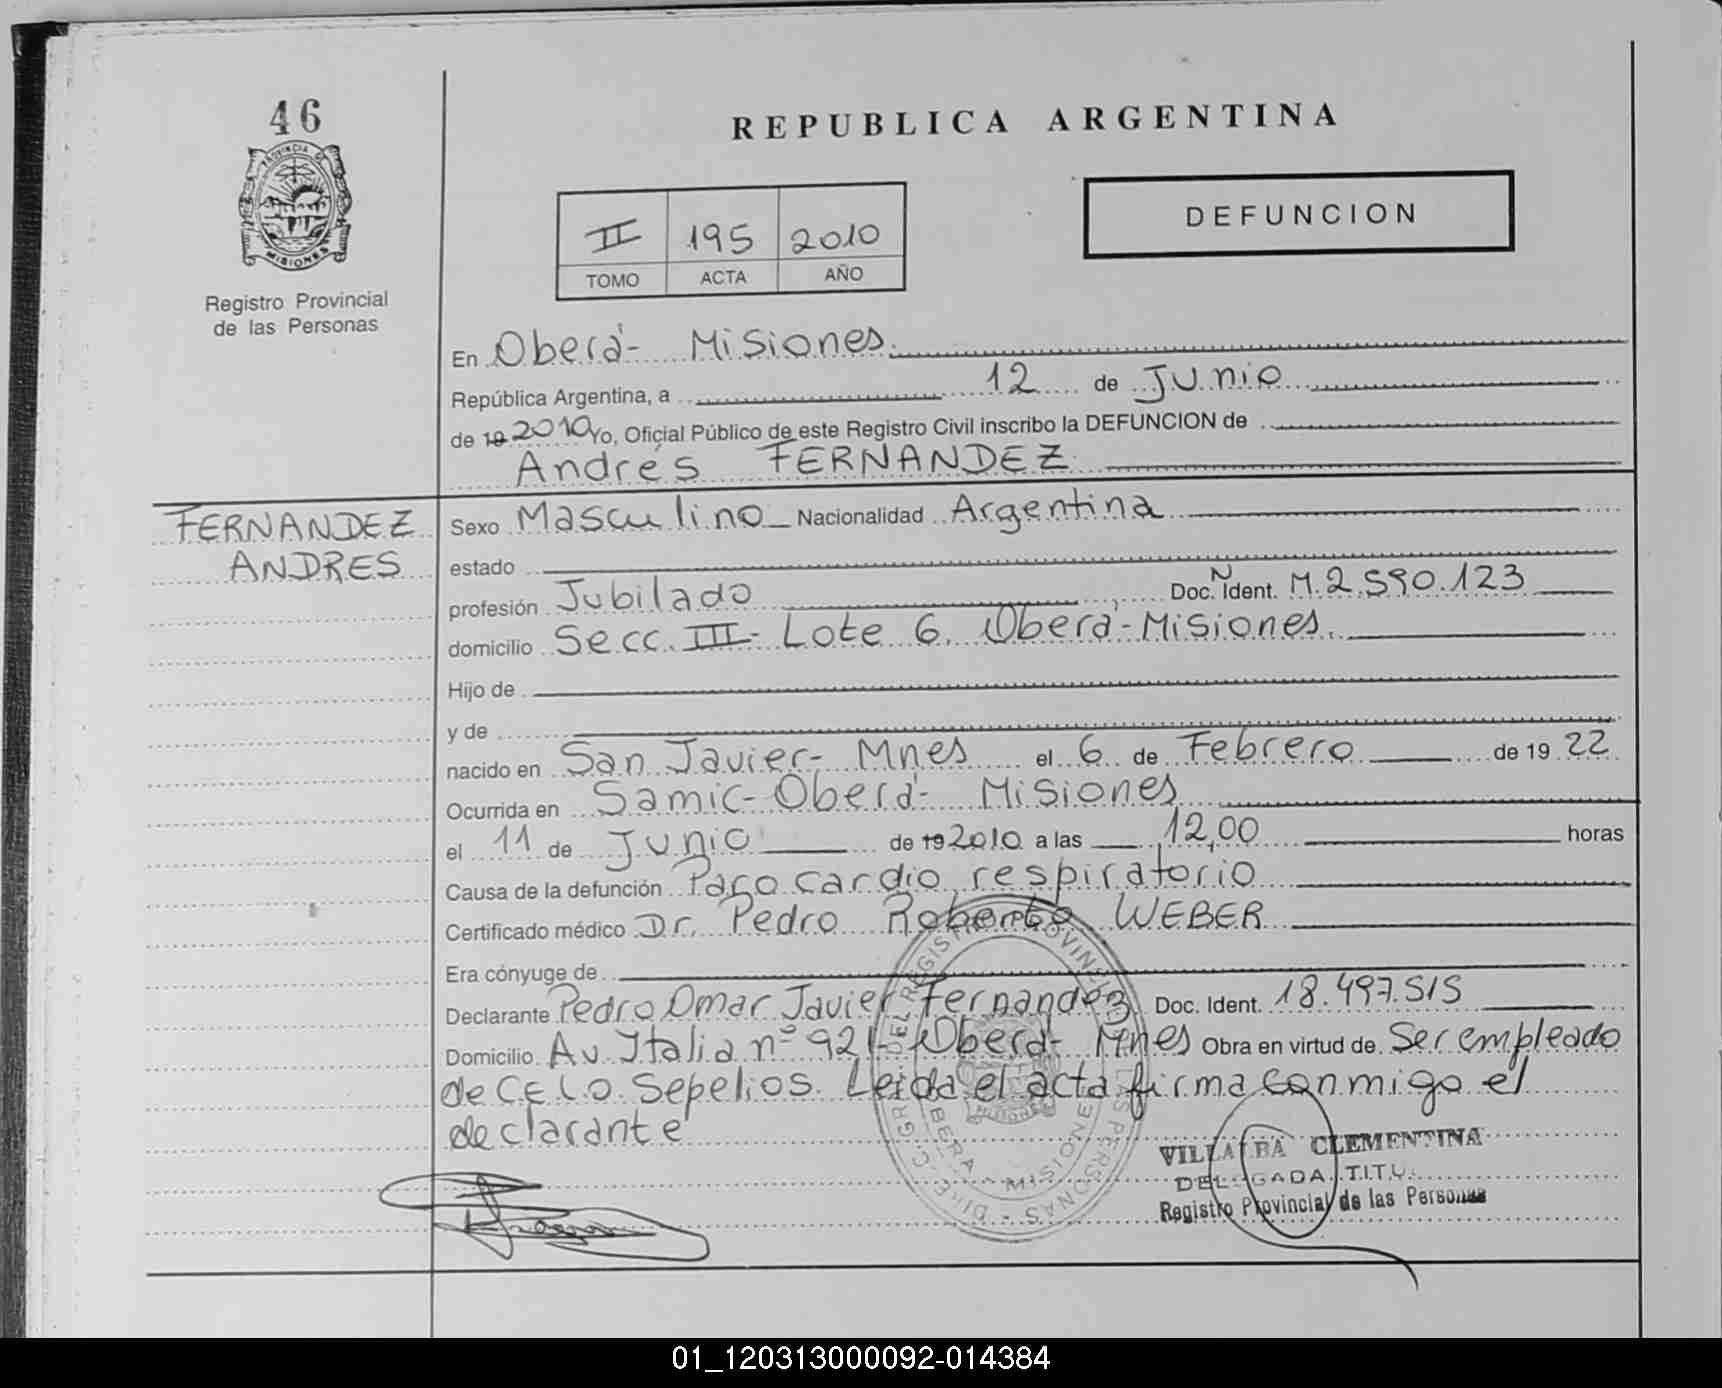 46
PROVINCIA DE
MISIONES
Registro Provincial
de las Personas
REPUBLICA ARGENTINA
II 195 2010
TOMO ACTA AÑO
DEFUNCION
En Oberá - Misiones
República Argentina, a 12 de Junio
de 19 2010 Yo, Oficial Público de este Registro Civil inscribo la DEFUNCION de
Andrés FERNANDEZ
FERNANDEZ
ANDRES
Sexo Masculino Nacionalidad Argentina
estado
profesión Jubilado Doc. N Ident. M.2.590.123
domicilio Secc. III - Lote 6. Oberá - Misiones
Hijo de
y de
nacido en San Javier - Mnes el 6 de Febrero de 19 22
Ocurrida en Samic - Oberá - Misiones
el 11 de Junio de 19 2010 a las 12,00 horas
Causa de la defunción Paro cardio respiratorio
Certificado médico Dr. Pedro Roberto WEBER
Era cónyuge de
Declarante Pedro Omar Javier Fernandez Doc. Ident. 18.497.515
Domicilio Av. Italia nº 921 - Oberá - Mnes Obra en virtud de Ser empleado
de CELO Sepelios. Leida el acta firma conmigo el
declarante
VILLALBA CLEMENTINA
DELEGADA TITU.
Registro Provincial de las Personas
01_120313000092-014384